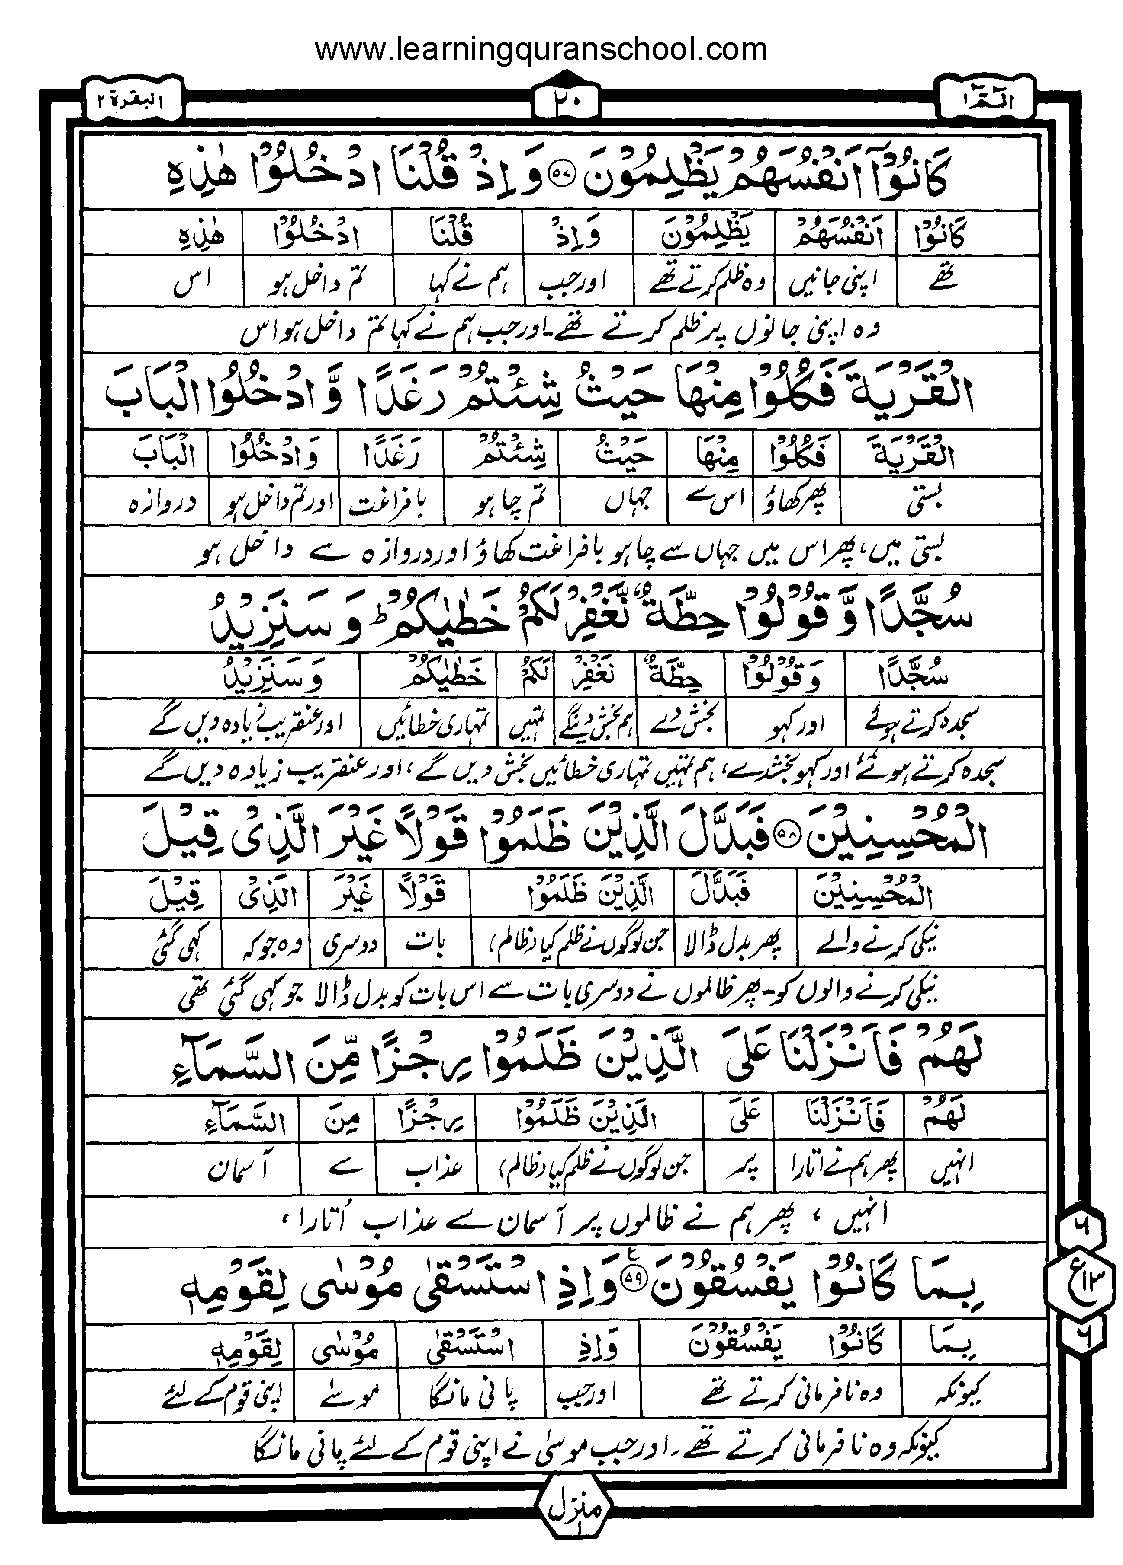 www.learningquranschool.com
الٓمّٓ ١ ٢٠ البقرة ٢
كَانُوْۤا اَنْفُسَهُمْ يَظْلِمُوْنَ ﴿٥٧﴾ وَ اِذْ قُلْنَا ادْخُلُوْا هٰذِهِ
كَانُوْۤا اَنْفُسَهُمْ يَظْلِمُوْنَ وَاِذْ قُلْنَا ادْخُلُوْا هٰذِهِ
تھے اپنی جانیں وہ ظلم کرتے تھے اور جب ہم نے کہا تم داخل ہو اس
وہ اپنی جانوں پر ظلم کرتے تھے۔ اور جب ہم نے کہا تم داخل ہو اس
الْقَرْيَةَ فَكُلُوْا مِنْهَا حَيْثُ شِئْتُمْ رَغَدًا وَّ ادْخُلُوا الْبَابَ
الْقَرْيَةَ فَكُلُوْا مِنْهَا حَيْثُ شِئْتُمْ رَغَدًا وَادْخُلُوا الْبَابَ
بستی پھر کھاؤ اس سے جہاں تم چاہو بافراغت اور تم داخل ہو دروازہ
بستی میں، پھر اس میں جہاں سے چاہو بافراغت کھاؤ اور دروازہ سے داخل ہو
سُجَّدًا وَّ قُوْلُوْا حِطَّةٌ نَّغْفِرْ لَكُمْ خَطٰيٰكُمْ ؕ وَ سَنَزِيْدُ
سُجَّدًا وَقُوْلُوْا حِطَّةٌ نَغْفِرْ لَكُمْ خَطٰيٰكُمْ وَسَنَزِيْدُ
سجدہ کرتے ہوئے اور کہو بخش دے ہم بخش دینگے تمہیں تمہاری خطائیں اور عنقریب زیادہ دیں گے
سجدہ کرتے ہوئے، اور کہو بخشدے، ہم تمہیں تمہاری خطائیں بخش دیں گے، اور عنقریب زیادہ دیں گے
الْمُحْسِنِيْنَ ﴿٥٨﴾ فَبَدَّلَ الَّذِيْنَ ظَلَمُوْا قَوْلًا غَيْرَ الَّذِيْ قِيْلَ
الْمُحْسِنِيْنَ فَبَدَّلَ الَّذِيْنَ ظَلَمُوْا قَوْلًا غَيْرَ الَّذِيْ قِيْلَ
نیکی کرنے والے پھر بدل ڈالا جن لوگوں نے ظلم کیا (ظالم) بات دوسری وہ جو کہ کہی گئی
نیکی کرنے والوں کو۔ پھر ظالموں نے دوسری بات سے اس بات کو بدل ڈالا جو کہی گئی تھی
لَهُمْ فَاَنْزَلْنَا عَلَى الَّذِيْنَ ظَلَمُوْا رِجْزًا مِّنَ السَّمَآءِ
لَهُمْ فَاَنْزَلْنَا عَلَى الَّذِيْنَ ظَلَمُوْا رِجْزًا مِنَ السَّمَآءِ
انہیں پھر ہم نے اتارا پر جن لوگوں نے ظلم کیا (ظالم) عذاب سے آسمان
انہیں، پھر ہم نے ظالموں پر آسمان سے عذاب اُتارا،
بِمَا كَانُوْا يَفْسُقُوْنَ ﴿٥٩﴾ وَاِذِ اسْتَسْقٰى مُوْسٰى لِقَوْمِهٖ
٦ ع١٣ ٦
بِمَا كَانُوْا يَفْسُقُوْنَ وَاِذِ اسْتَسْقٰى مُوْسٰى لِقَوْمِهٖ
کیونکہ وہ نافرمانی کرتے تھے اور جب پانی مانگا موسیٰ اپنی قوم کے لئے
کیونکہ وہ نافرمانی کرتے تھے۔ اور جب موسیٰ نے اپنی قوم کے لئے پانی مانگا
منزل ١